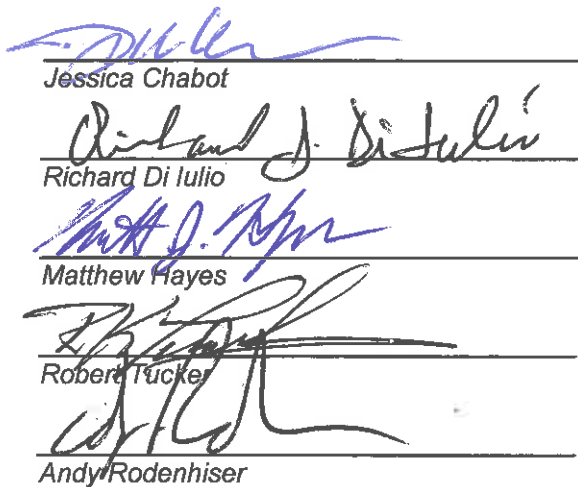 Jessica Chabot
Richard J. Di Iulio
Richard Di Iulio
Matt J. Hayes
Matthew Hayes
Robert Tucker
Andy Rodenhiser